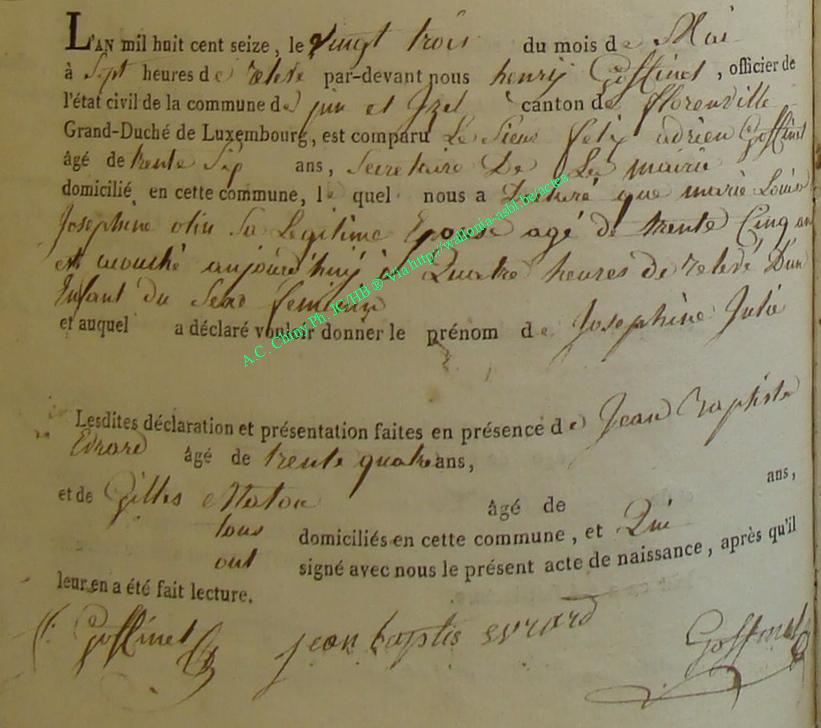 L'AN mil huit cent seize, le vingt trois du mois de Mai
à Sept heures de relevé par-devant nous henrij Goffinet, officier de
l'état civil de la commune de jzel canton de florenville
Grand-Duché de Luxembourg, est comparu Le Sieur felix adrien Goffinet
âgé de trente Six ans, Secretaire De La mairie
domicilié en cette commune, le quel nous a Declaré que marie Louise
Josephine otin Sa Legitime Epouse agé de trente Cinq an
est acouché aujourd'huij à Quatre heures de relevé D'un
Enfant du Sexe feminin
et auquel a déclaré vouloir donner le prénom de Josephine Julie
Lesdites déclaration et présentation faites en présence de Jean Baptiste
Evrard âgé de trente quatre ans,
et de Gilles âgé de ans,
tous domiciliés en cette commune, et Qui
ont signé avec nous le présent acte de naissance, après qu'il
leur en a été fait lecture.
Goffinet jean baptis evrard Goffinet
A.C. Chiny Ph. JC/HB ® Via http://wallonia-asbl.be/actes